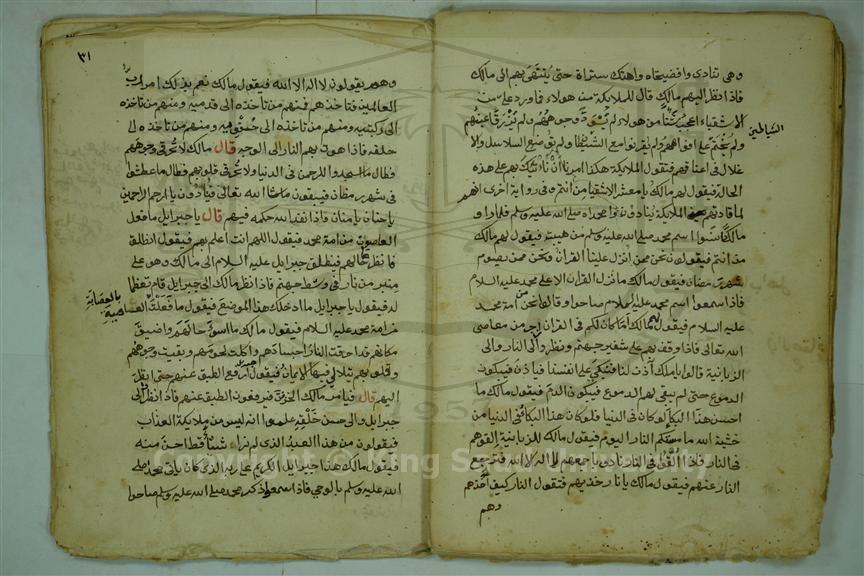 وهى تنادى وافضيحتاه واهتك ستراه حتى ينتهى بهم الى مالك
فاذا نظر اليهم مالك قال للملايكة من هولاء فما ورد على من
الاشقياء اعجب شأنا من هولاء لم تسود وجوههم ولم تزرق اعينهم
ولم يختم على افواههم ولم يقرنوا مع الشيطان ولم توضع السلاسل والا
غلال فى اعناقهم فتقول الملايكة هكذا امرنا ان ناتيك بهم على هذه
الحالة فيقول لهم مالك يا معشر الاشقيا من انتم وفى رواية اخرى انهم
لما قادتهم الملايكة ينادون وامحمداه صلى الله عليه وسلم فلما راوا
مالكا نسوا اسم محمد صلى الله عليه وسلم من هيبته فيقول لهم مالك
من انتم فيقولون نحن ممن انزل علينا القران ونحن ممن يصوم
شهر رمضان فيقول مالك ما نزل القران الا على محمد عليه السلام
فاذا سمعوا اسم محمد عليه السلام صاحوا وقالوا نحن من امة محمد
عليه السلام فيقول لهم مالك اما كان لكم فى القران زاجر من معاصى
الله تعالى فاذا وقف بهم على شفير جهنم ونظروا الى النار والى
الزبانية قالوا يا مالك أذن لنا فنبكى على انفسنا فياذن فيبكون
الدموع حتى لم يبقى لهم الدموع فيبكون الدم فيقول مالك ما
احسن هذا البكأ لو كان فى الدنيا فلو كان هذا البكا فى الدنيا من
خشية الله ما مستكم النار اليوم فيقول مالك للزبانية القوهم
فى النار فاذا القوا فى النار نادى باجمعهم لا اله الا الله فترجع
النار عنهم فيقول مالك يا نار خذيهم فتقول النار كيف آخذهم
وهم
الشياطين
٣١
وهم يقولون لا اله الا الله فيقول مالك نعم بذلك امر رب
العالمين فتاخذهم فمنهم من تأخذه الى قدميه ومنهم من تاخذه
الى ركبتيه ومنهم من تاخذه الى حقويه ومنهم من تاخذه الى
حلقه فاذا هوت بهم النار الى الوجه قال مالك لا تحرقى وجوههم
فطال ما سجدوا للرحمن فى الدنيا ولا تحرقى قلوبهم فطال ما عطشوا
فى شهر رمضان فيبقون ماشا الله تعالى فينادون يا ارحم الراحمين
يا حنان يا منان فاذا انفد الله حكمه فيهم قال يا جبرايل ما فعل
العاصون من امة محمد فيقول اللهم انت اعلم بهم فيقول انطلق
فانظر حالهم فينطلق جبرايل عليه السلام الى مالك وهو على
منبر من نار فى وسط جهنم فاذا نظر مالك الى جبرايل قام تعظيما
له فيقول يا جبرايل ما ادخلك هذا الموضع فيقول ما فعلت العصابة
بالعصابة
من امة محمد عليه السلام فيقول مالك ما اسوأ حالهم واضيق
مكانهم قد احرقت النار اجسادهم واكلت لحومهم وبقيت وجوههم
وقلوبهم يتلالى فيها الايمان فيقول ارفع الطبق عنهم حتى انظر
اليهم قال فيامر مالك الخزنة فيرفعون الطبق عنهم فاذا نظروا الى
جبرايل والى حسن خلقه علموا انه ليس من ملايكة العذاب
فيقولون من هذا العبد الذى لم نراء شيأ قط احسن منه
فيقول مالك هذا جبرايل الكريم على ربه الذى كان ياتى محمد صلى
الله عليه وسلم بالوحى فاذا سمعوا ذكر محمد صلى الله عليه وسلم صاحوا